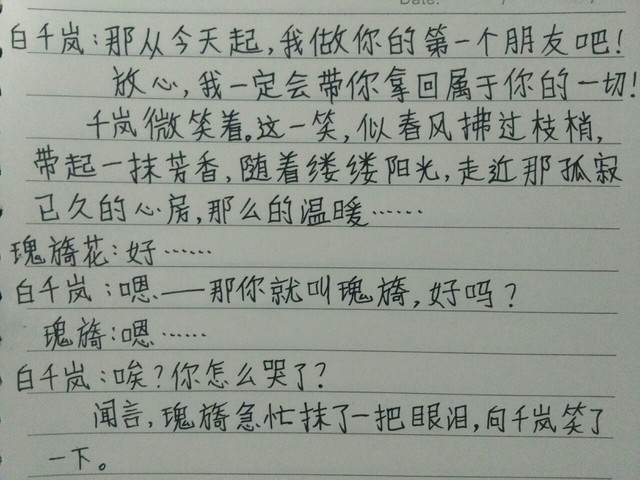 Date:
白千岚：那从今天起，我做你的第一个朋友吧！
放心，我一定会带你拿回属于你的一切！
千岚微笑着。这一笑，似春风拂过枝梢，
带起一抹芳香，随着缕缕阳光，走近那孤寂
已久的心房，那么的温暖……
瑰旖花：好……
白千岚：嗯——那你就叫瑰旖，好吗？
瑰旖：嗯……
白千岚：唉？你怎么哭了？
闻言，瑰旖急忙抹了一把眼泪，向千岚笑了
一下。